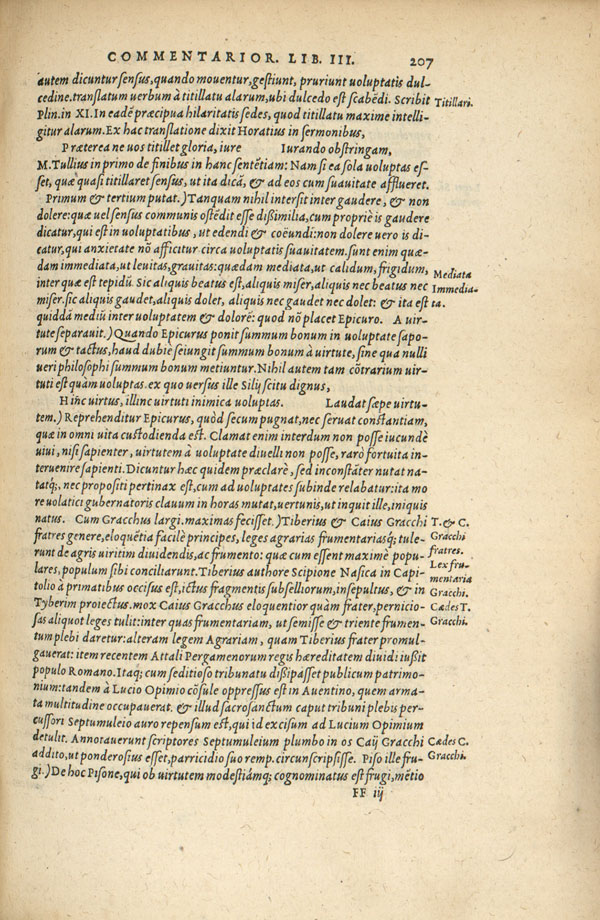 COMMENTARIOR. LIB. III. 207
autem dicuntur sensus, quando mouentur, gestiunt, pruriunt uoluptatis dul-
cedine. translatum uerbum à titillatu alarum, ubi dulcedo est scabēdi. Scribit Titillari.
Plin. in XI. In eadē præcipua hilaritatis sedes, quod titillatu maxime intelli-
gitur alarum. Ex hac translatione dixit Horatius in sermonibus,
Præterea ne uos titillet gloria, iure Iurando obstringam,
M. Tullius in primo de finibus in hanc sentētiam: Nam si ea sola uoluptas es-
set, quæ quasi titillaret sensus, ut ita dicā, & ad eos cum suauitate afflueret.
Primum & tertium putat.) Tanquam nihil intersit inter gaudere, & non
dolere: quæ uel sensus communis ostēdit esse dißimilia, cum propriè is gaudere
dicatur, qui est in uoluptatibus, ut edendi & coëundi: non dolere uero is di-
catur, qui anxietate nō afficitur circa uoluptatis suauitatem. sunt enim quæ-
dam immediata, ut leuitas, grauitas: quædam mediata, ut calidum, frigidum, Mediata
inter quæ est tepidū. Sic aliquis beatus est, aliquis miser, aliquis nec beatus nec Immedia-
miser. sic aliquis gaudet, aliquis dolet, aliquis nec gaudet nec dolet: & ita est ta.
quiddā mediū inter uoluptatem & dolorē: quod nō placet Epicuro. A uir-
tute separauit.) Quando Epicurus ponit summum bonum in uoluptate sapo-
rum & tactus, haud dubiè seiungit summum bonum à uirtute, sine qua nulli
ueri philosophi summum bonum metiuntur. Nihil autem tam cōtrarium uir-
tuti est quàm uoluptas. ex quo uersus ille Silij scitu dignus,
Hinc uirtus, illinc uirtuti inimica uoluptas. Laudat sæpe uirtu-
tem.) Reprehenditur Epicurus, quòd secum pugnat, nec seruat constantiam,
quæ in omni uita custodienda est. Clamat enim interdum non posse iucundè
uiui, nisi sapienter, uirtutem à uoluptate diuelli non posse, rarò fortuita in-
teruenire sapienti. Dicuntur hæc quidem præclarè, sed inconstāter nutat na-
tatq́;, nec propositi pertinax est, cum ad uoluptates subinde relabatur: ita mo
re uolatici gubernatoris clauum in horas mutat, uertunis, ut inquit ille, iniquis
natus. Cum Gracchus largi. maximas fecisset.) Tiberius & Caius Gracchi T. & C.
fratres genere, eloquētia facilè principes, leges agrarias frumentariasq́; tule- Gracchi
runt de agris uiritim diuidendis, ac frumento: quæ cum essent maximè popu- fratres.
lares, populum sibi conciliarunt. Tiberius authore Scipione Nasica in Capi- Lex fru-
mentaria
tolio à primatibus occisus est, ictus fragmentis subselliorum, insepultus, & in Gracchi.
Tyberim proiectus. mox Caius Gracchus eloquentior quàm frater, pernicio- Cædes T.
sas aliquot leges tulit: inter quas frumentariam, ut semisse & triente frumen- Gracchi.
tum plebi daretur: alteram legem Agrariam, quam Tiberius frater promul-
gauerat: item recentem Attali Pergamenorum regis hæreditatem diuidi iußit
populo Romano. Itaq́; cum seditioso tribunatu dißipasset publicum patrimo-
nium: tandem à Lucio Opimio cōsule oppressus est in Auentino, quem arma-
ta multitudine occupauerat. & illud sacrosanctum caput tribuni plebis per-
cussori Septumuleio auro repensum est, qui id excisum ad Lucium Opimium
detulit. Annotauerunt scriptores Septumuleium plumbo in os Caij Gracchi Cædes C.
addito, ut ponderosius esset, parricidio suo remp. circunscripsisse. Piso ille fru- Gracchi.
gi.) De hoc Pisone, qui ob uirtutem modestiámq́; cognominatus est frugi, mētio
FF iij